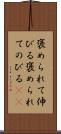 褒められて伸
びる褒められ
てのびる